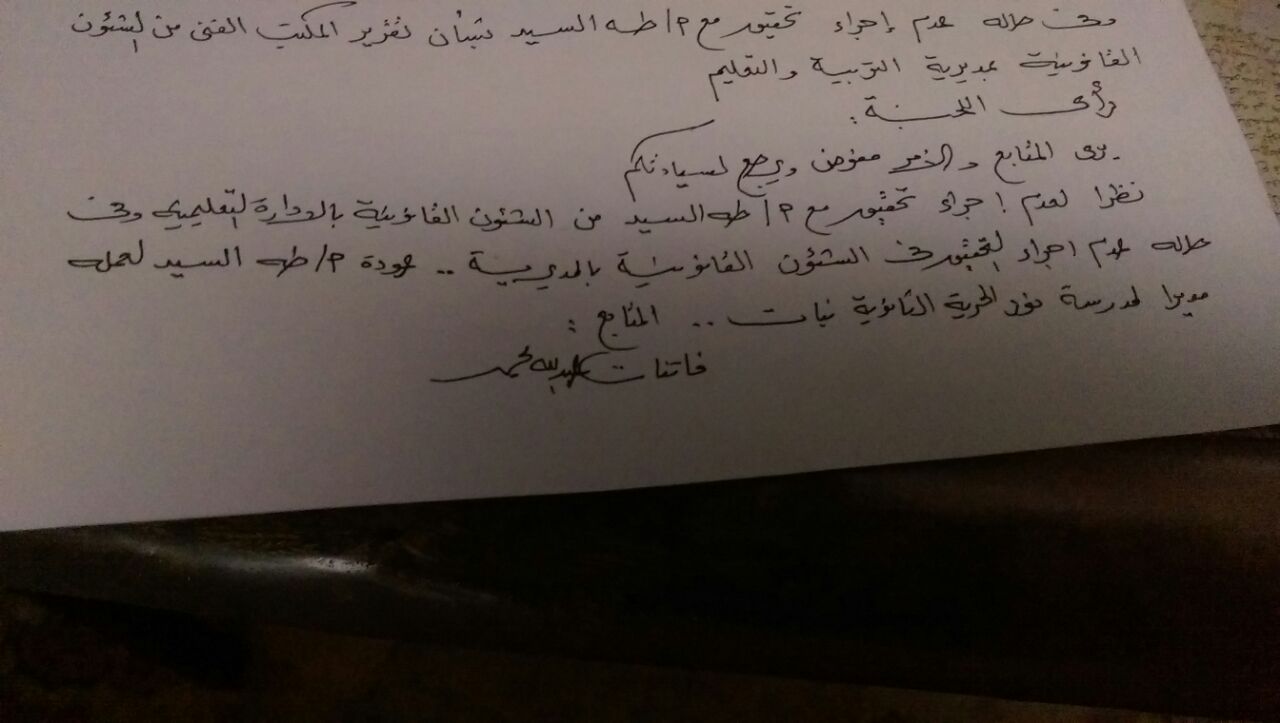 وفى حالة عدم إجراء تحقيق مع م/ طه السيد بشأن تقرير المكتب الفنى من الشئون
القانونية بمديرية التربية والتعليم
رأى اللجنة :
يرى المتابع والأمر مفوض ويرجع لسيادتكم
نظرا لعدم إجراء تحقيق مع م/ طه السيد من الشئون القانونية بالادارة التعليمية وفى
حالة عدم اجراء التحقيق فى الشئون القانونية بالمديرية .. عودة م/ طه السيد لعمله
مديرا لمدرسة الحرية الثانوية بنات .. المتابع :
فاتنات عبدالله محمد